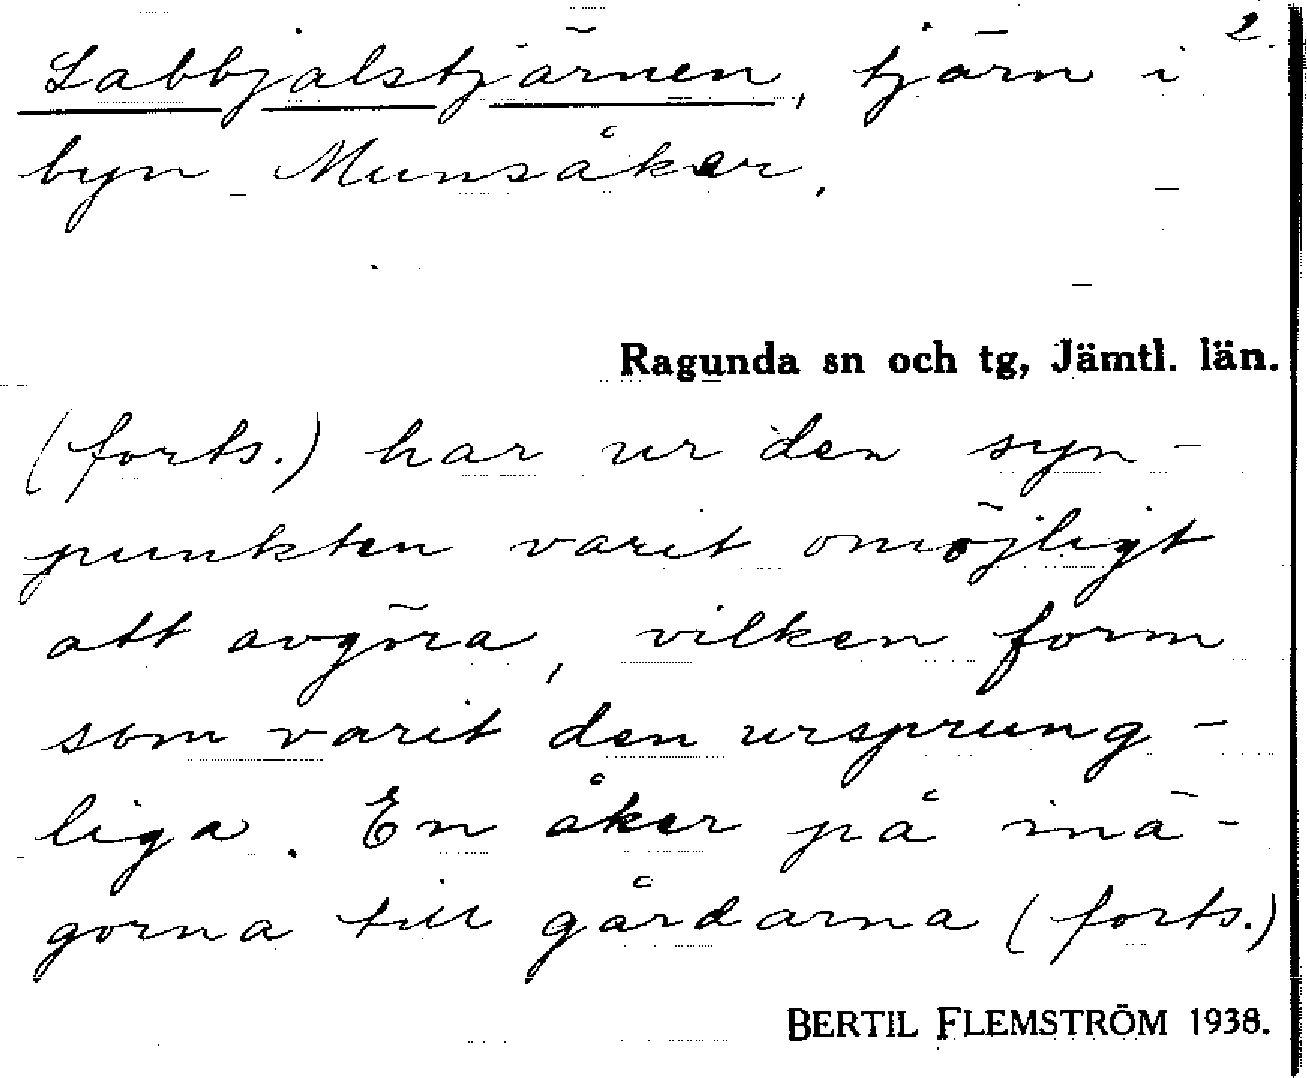 2.
Labbjalstjärnen, tjärn i
byn Munsåker.
Ragunda sn och tg, Jämtl. län.
(forts.) har ur den syn-
punkten varit omöjligt
att avgöra, vilken form
som varit den ursprung-
liga. En åker på inä-
gorna till gårdarna (forts.)
BERTIL FLEMSTRÖM 1938.